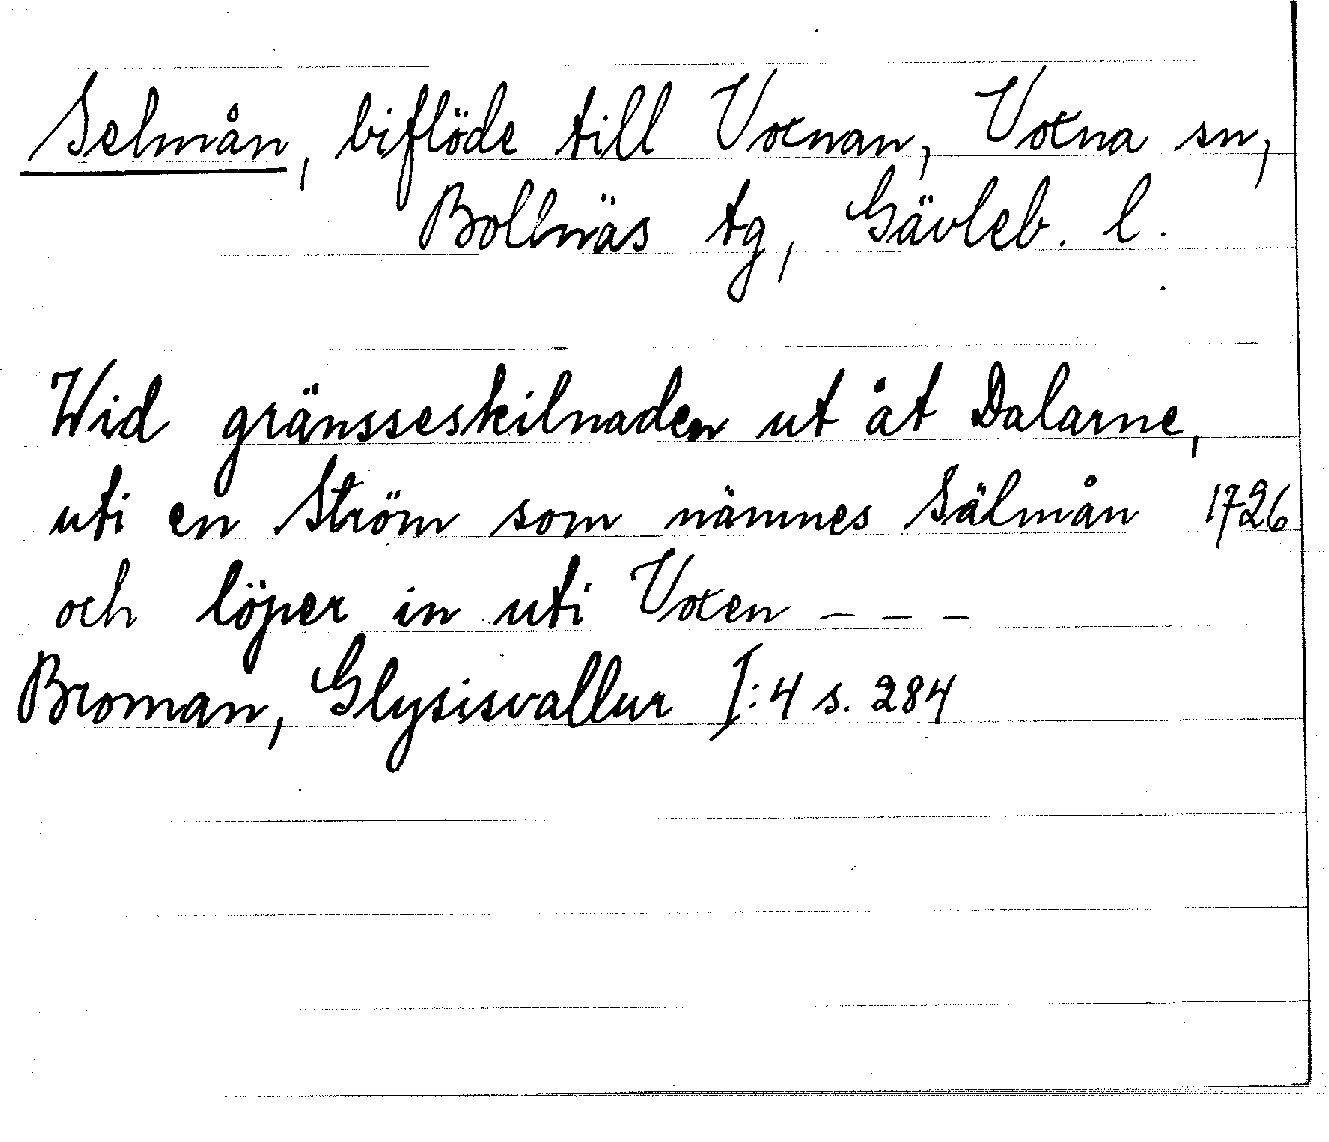 Selmån, biflöde till Voxnan, Voxna sn,
Bollnäs tg, Gävleb. l.
Wid gränsseskilnaden ut åt Dalarne,
uti en Ström som nämnes Sälmån 1726
och löper in uti Voxen – – –
Broman, Glysisvallur I:4 s. 284